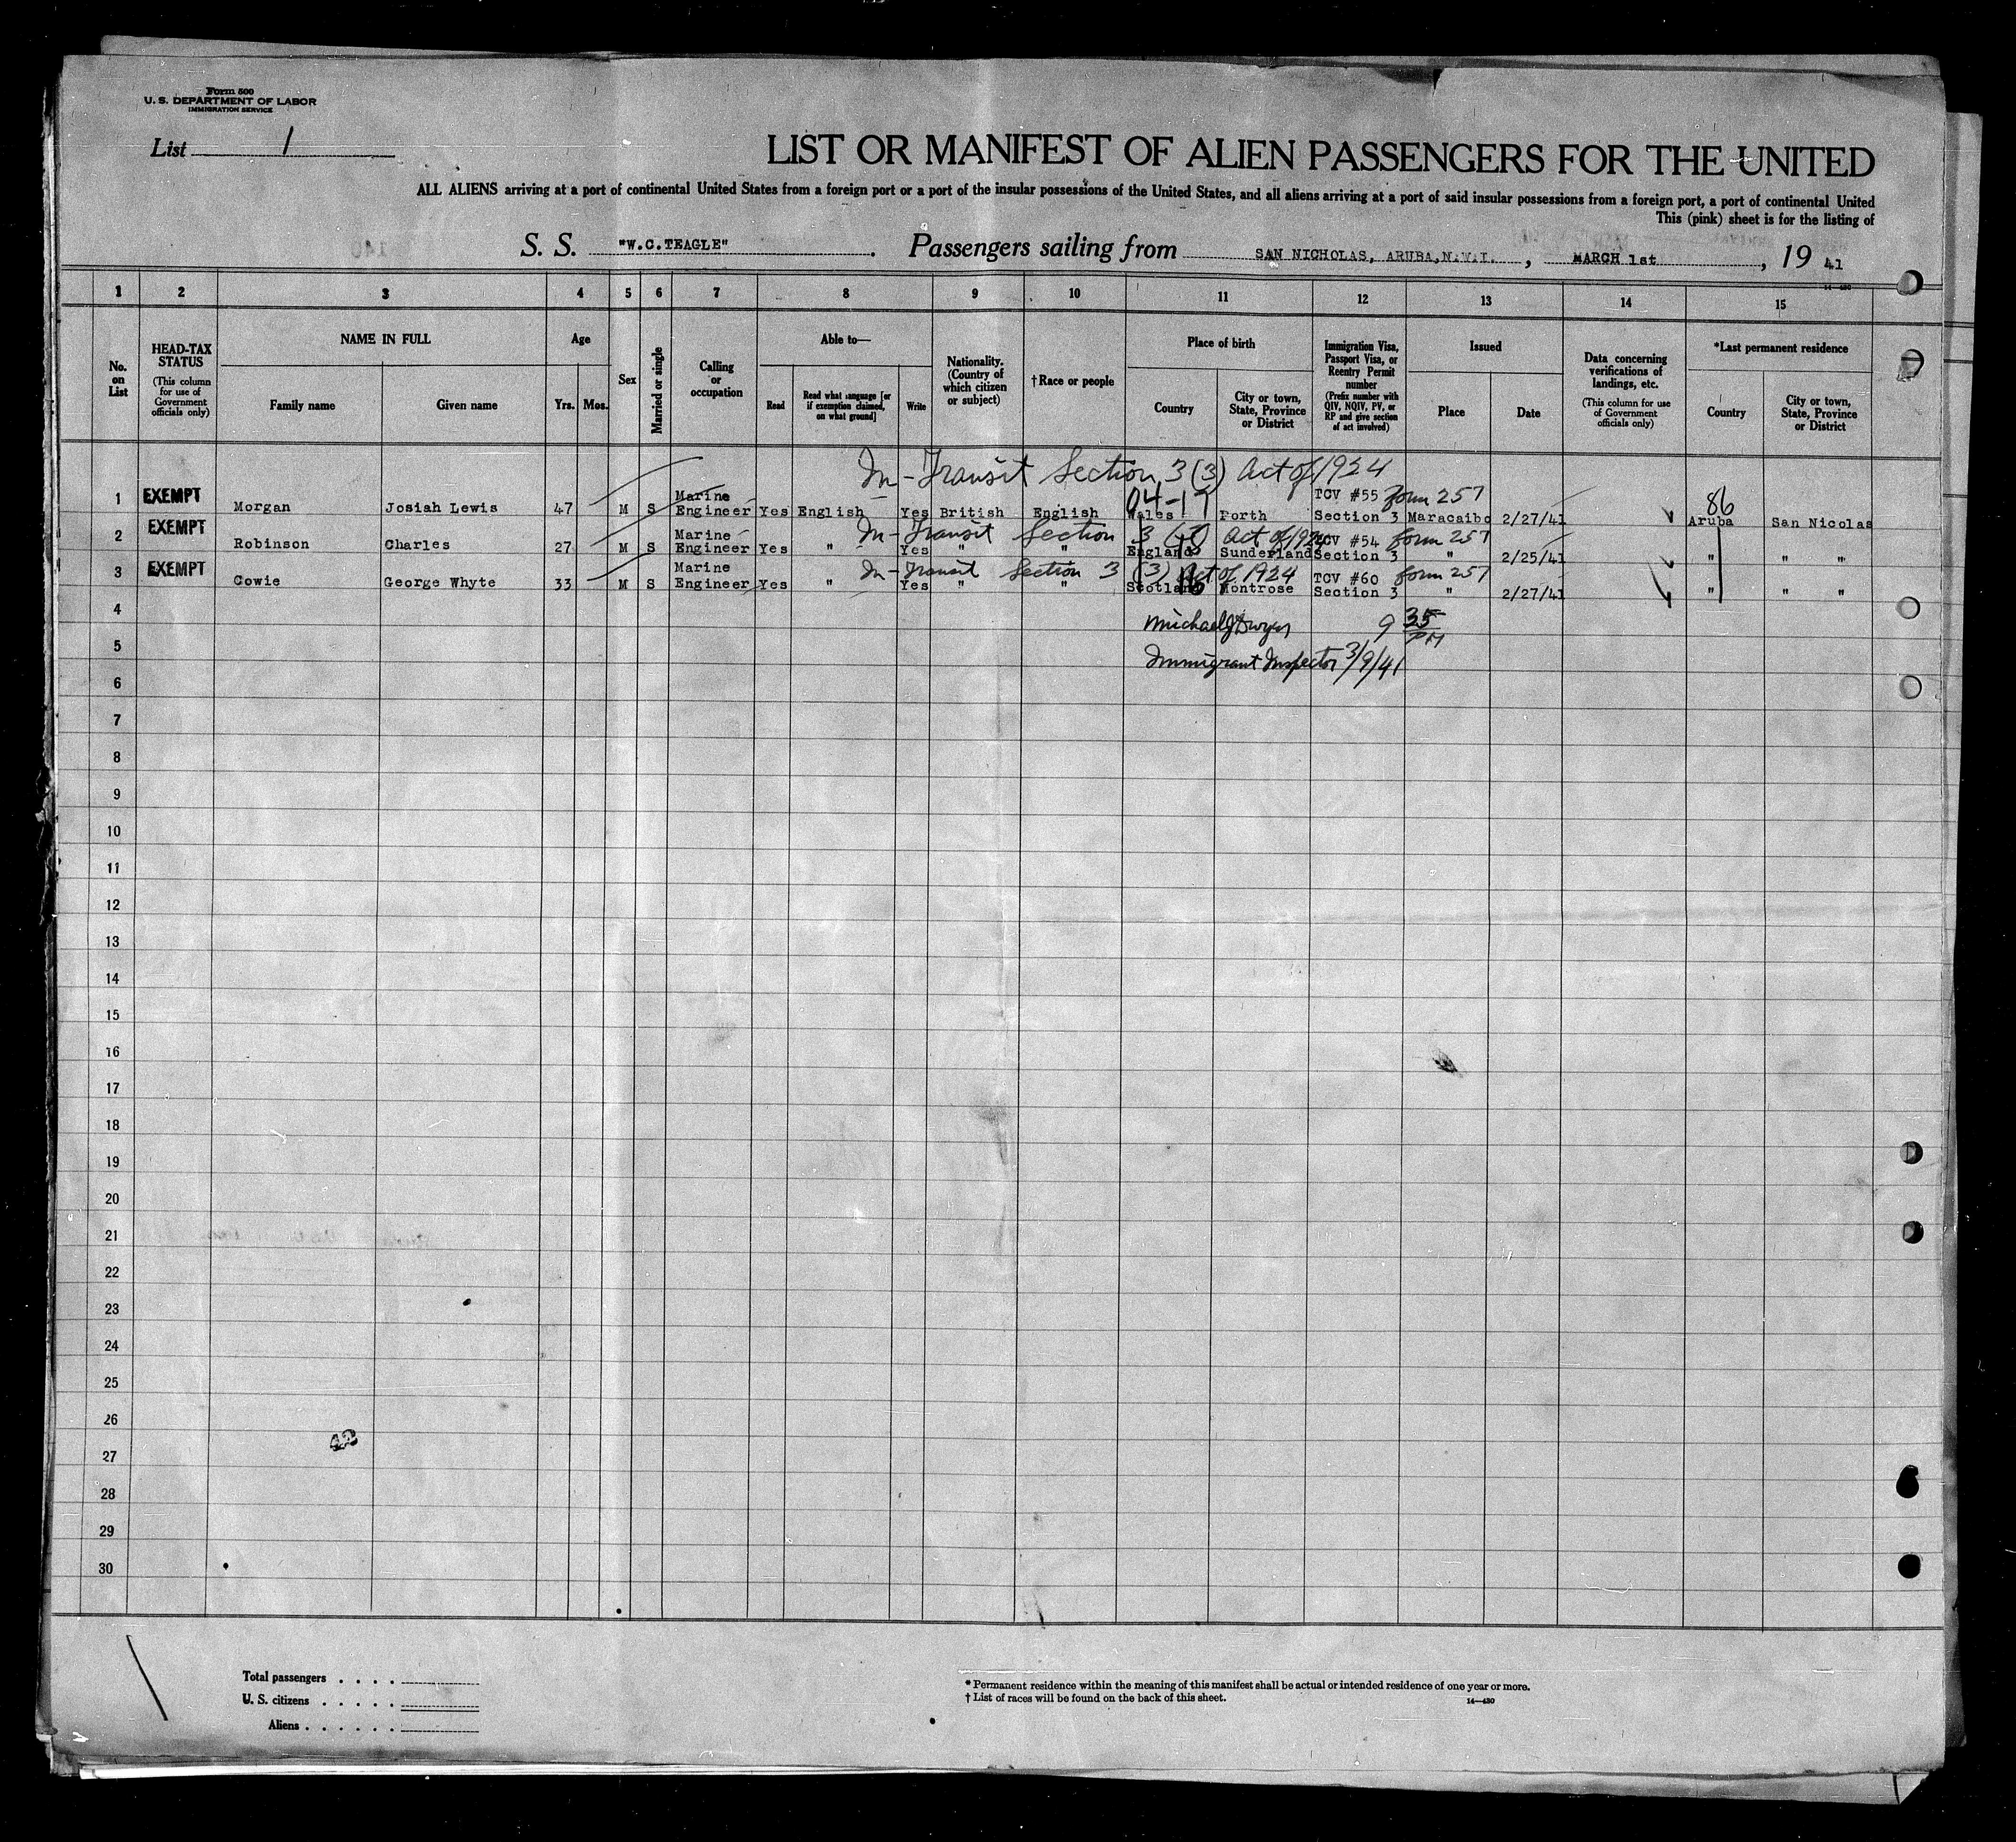 Form 500
U. S. DEPARTMENT OF LABOR
IMMIGRATION SERVICE
List 1
LIST OR MANIFEST OF ALIEN PASSENGERS FOR THE UNITED
ALL ALIENS arriving at a port of continental United States from a foreign port or a port of the insular possessions of the United States, and all aliens arriving at a port of said insular possessions from a foreign port, a port of continental United
This (pink) sheet is for the listing of
S. S. "W.C.TEAGLE". Passengers sailing from SAN NICHOLAS, ARUBA, N.W.I., MARCH 1st, 19 41
1 2 3 4 5 6 7 8 9 10 11 12 13 14 15
No. on List
HEAD-TAX STATUS (This column for use of Government officials only)
NAME IN FULL
Family name
Given name
Age
Yrs. Mos.
Sex
Married or single
Calling or occupation
Able to—
Read
Read what language [or if exemption claimed, on what ground]
Write
Nationality. (Country of which citizen or subject)
†Race or people
Place of birth
Country
City or town, State, Province or District
Immigration Visa, Passport Visa, or Reentry Permit number (Prefix number with QIV, NQIV, PV, or RP and give section of act involved)
Issued
Place
Date
Data concerning verifications of landings, etc. (This column for use of Government officials only)
*Last permanent residence
Country
City or town, State, Province or District
In-Transit Section 3 (3) Act of 1924
1 EXEMPT Morgan Josiah Lewis 47 M S Marine Engineer Yes English Yes British English Wales Porth TCV #55 Section 3 Form 257 Maracaibo 2/27/41 86 Aruba San Nicolas
In-Transit Section 3 (3) Act of 1924
2 EXEMPT Robinson Charles 27 M S Marine Engineer Yes " Yes " " England Sunderland TCV #54 Section 3 Form 257 " 2/25/41 " " "
In-Transit Section 3 (3) Act of 1924
3 EXEMPT Cowie George Whyte 33 M S Marine Engineer Yes " Yes " " Scotland Montrose TCV #60 Section 3 Form 257 " 2/27/41 " " "
4
Michael J Dwyer 9 35 PM
5
Immigrant Inspector 3/9/41
6
7
8
9
10
11
12
13
14
15
16
17
18
19
20
21
22
23
24
25
26
42
27
28
29
30
Total passengers . . . .
U. S. citizens . . . . .
Aliens . . . . . .
* Permanent residence within the meaning of this manifest shall be actual or intended residence of one year or more.
† List of races will be found on the back of this sheet.
14—430